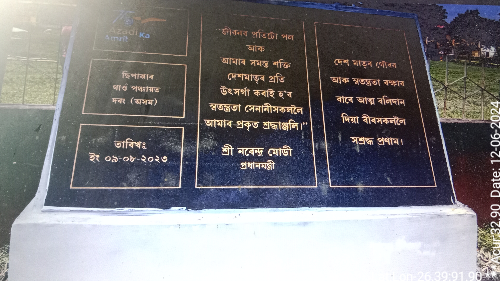 Azadi Ka
ছিপাঝাৰ
গাওঁ পঞ্চায়ত
দৰং (অসম)
তাৰিখঃ
ইং ০৯-০৮-২০২৩
জীৱনৰ প্ৰতিটো পল
আৰু
আমাৰ সমস্ত শক্তি
দেশমাতৃৰ প্ৰতি
উৎসৰ্গা কৰাই হ'ব
স্বতন্ত্ৰতা সেনানীসকললৈ
আমাৰ প্ৰকৃত শ্ৰদ্ধাঞ্জলি।"
শ্ৰী নৰেন্দ্ৰ মোডী
প্ৰধানমন্ত্ৰী
দেশ মাতৃৰ গৌৰৱ
আৰু স্বতন্ত্ৰতা ৰক্ষাৰ
বাবে আত্ম বলিদান
দিয়া বীৰসকললৈ
সশ্ৰদ্ধ প্ৰণাম।
Date: 12-06-2024